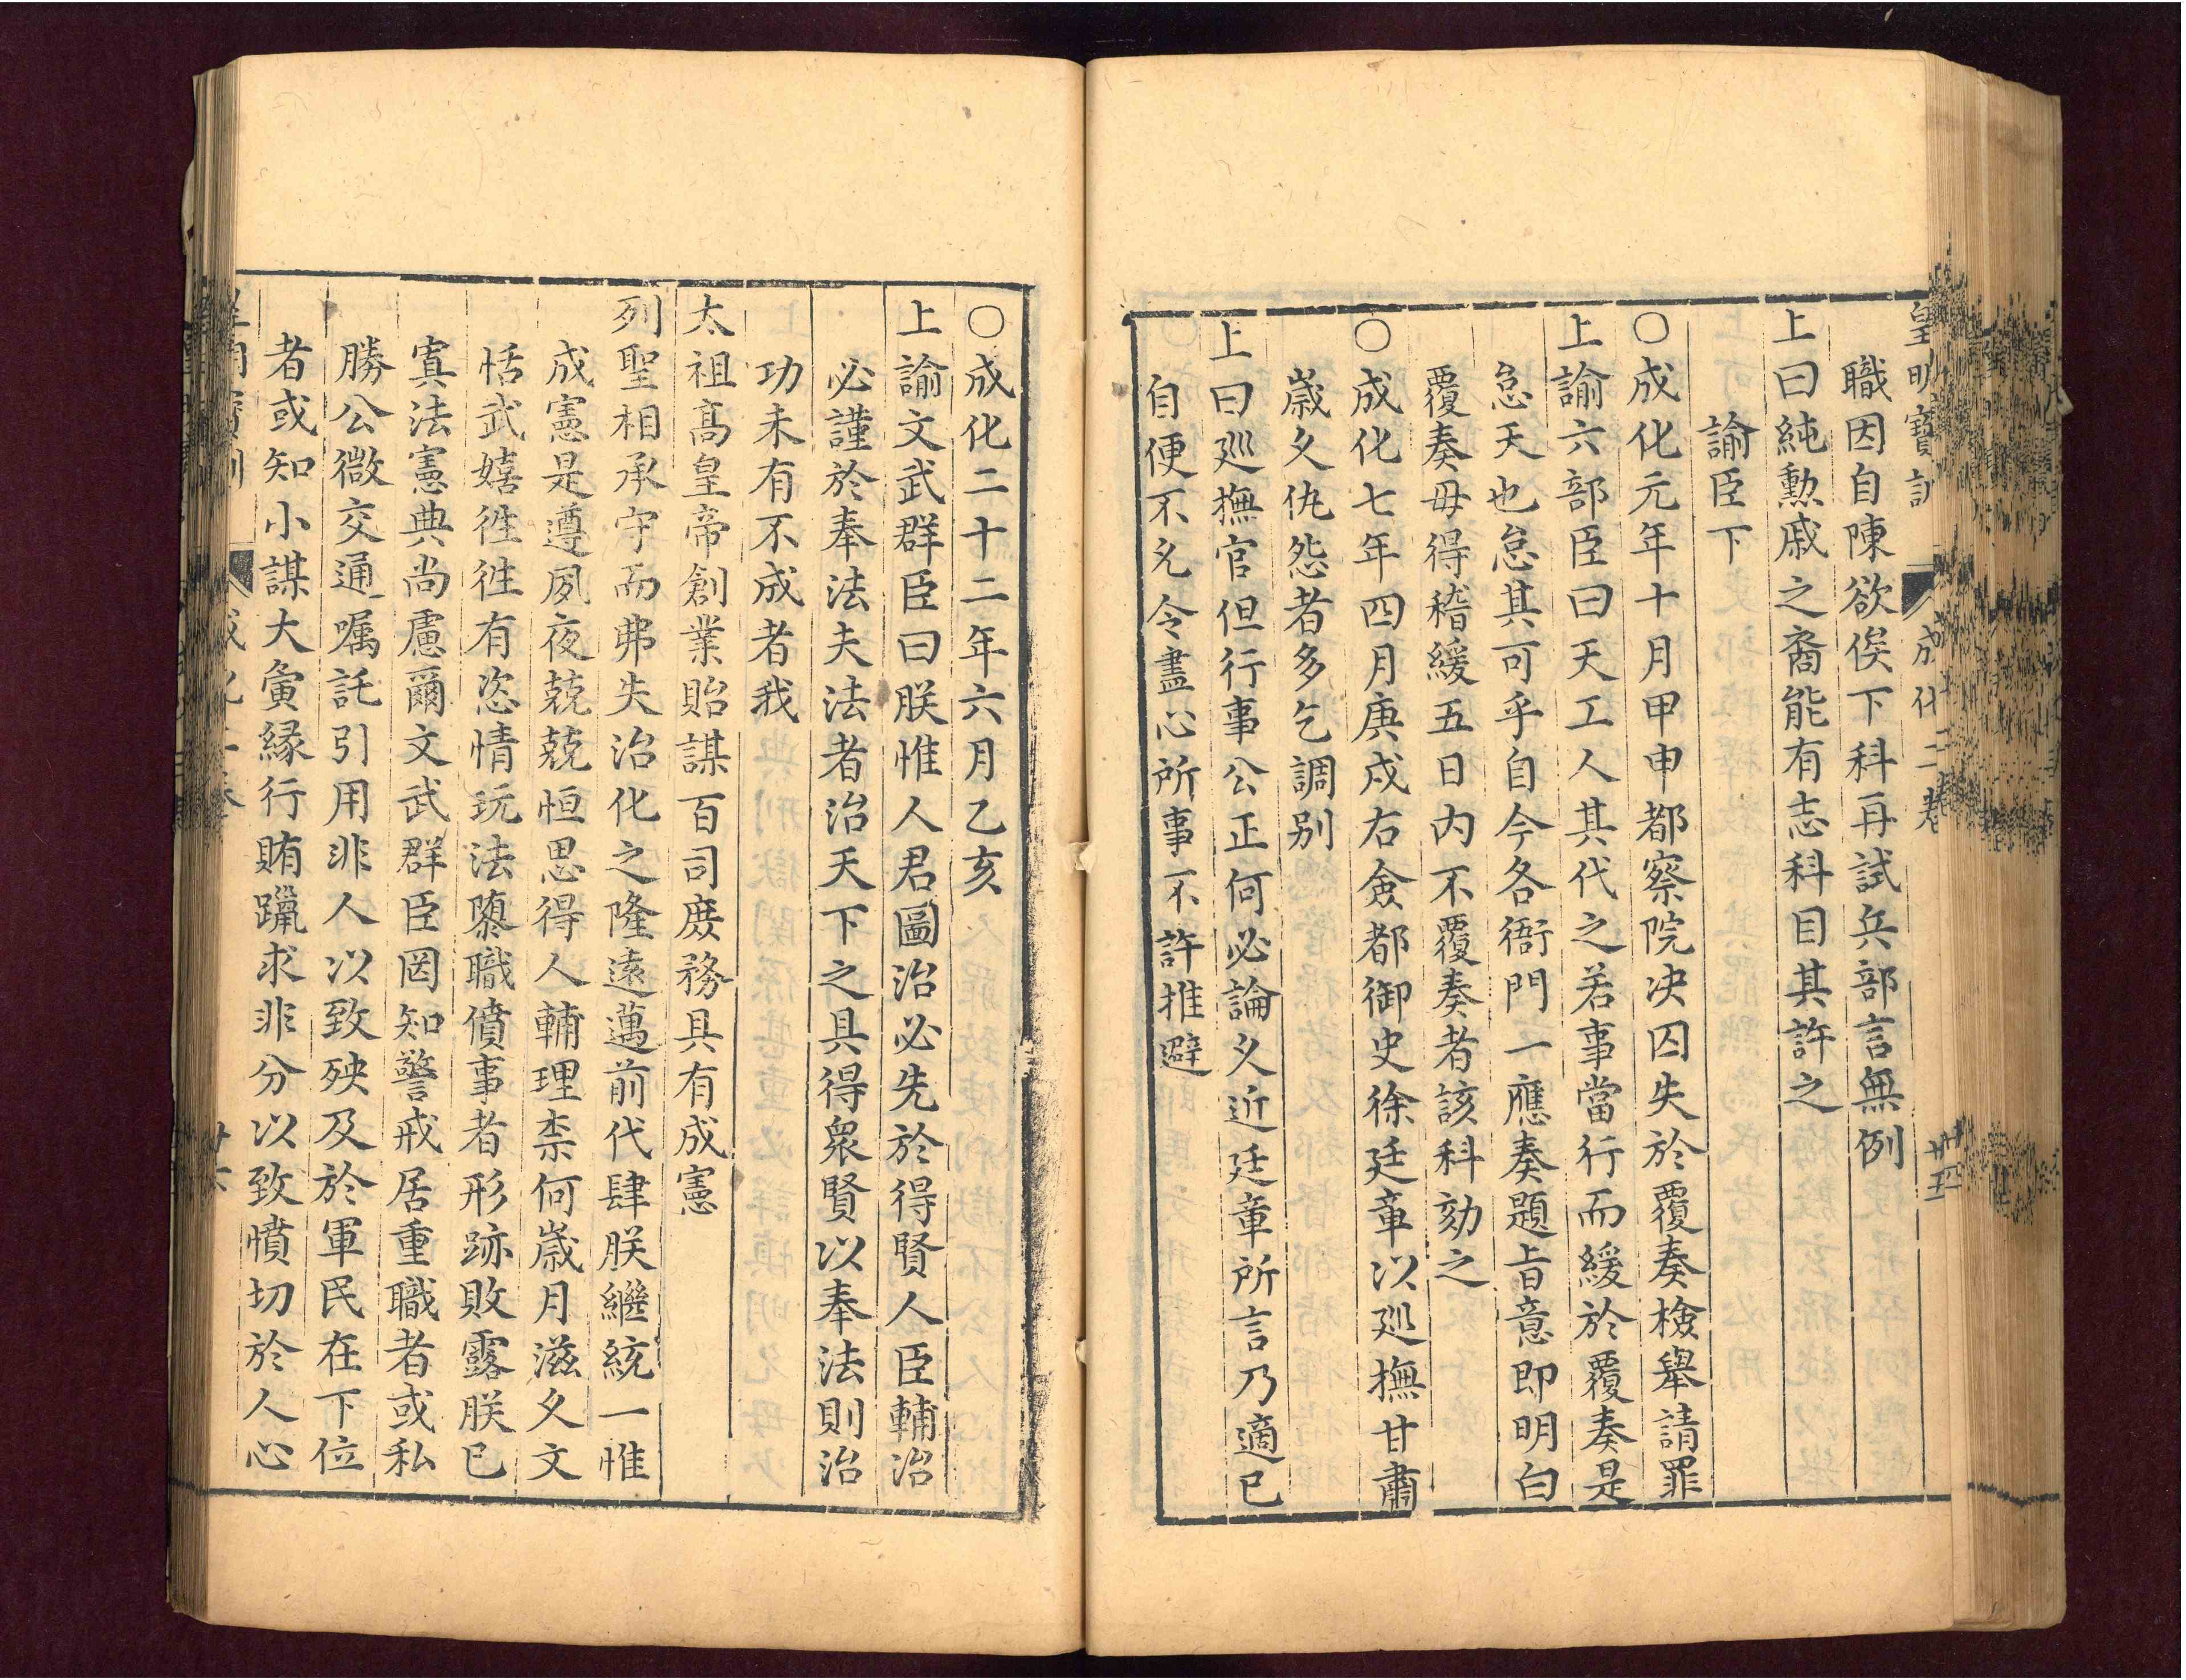 皇明寶訓 成化二卷 廿五
職因自陳欲俟下科再試兵部言無例
上曰純勲戚之裔能有志科目其許之
諭臣下
○成化元年十月甲申都察院决囚失於覆奏檢舉請罪
上諭六部臣曰天工人其代之若事當行而緩於覆奏是
怠天也怠其可乎自今各衙門一應奏題旨意即明白
覆奏毋得稽緩五日内不覆奏者該科劾之
○成化七年四月庚戌右僉都御史徐廷章以廵撫甘肅
歳久仇怨者多乞調别
上曰廵撫官但行事公正何必論久近廷章所言乃適已
自便不允令盡心所事不許推避
○成化二十二年六月乙亥
上諭文武群臣曰朕惟人君圖治必先於得賢人臣輔治
必謹於奉法夫法者治天下之具得衆賢以奉法則治
功未有不成者我
太祖髙皇帝創業貽謀百司庶務具有成憲
列聖相承守而弗失治化之隆遠邁前代肆朕繼統一惟
成憲是遵夙夜兢兢恒思得人輔理柰何歳月滋久文
恬武嬉徃徃有恣情玩法隳職僨事者形跡敗露朕已
寘法憲典尚慮爾文武群臣罔知警戒居重職者或私
勝公微交通嘱託引用非人以致殃及於軍民在下位
者或知小謀大夤緣行賄躐求非分以致憤切於人心